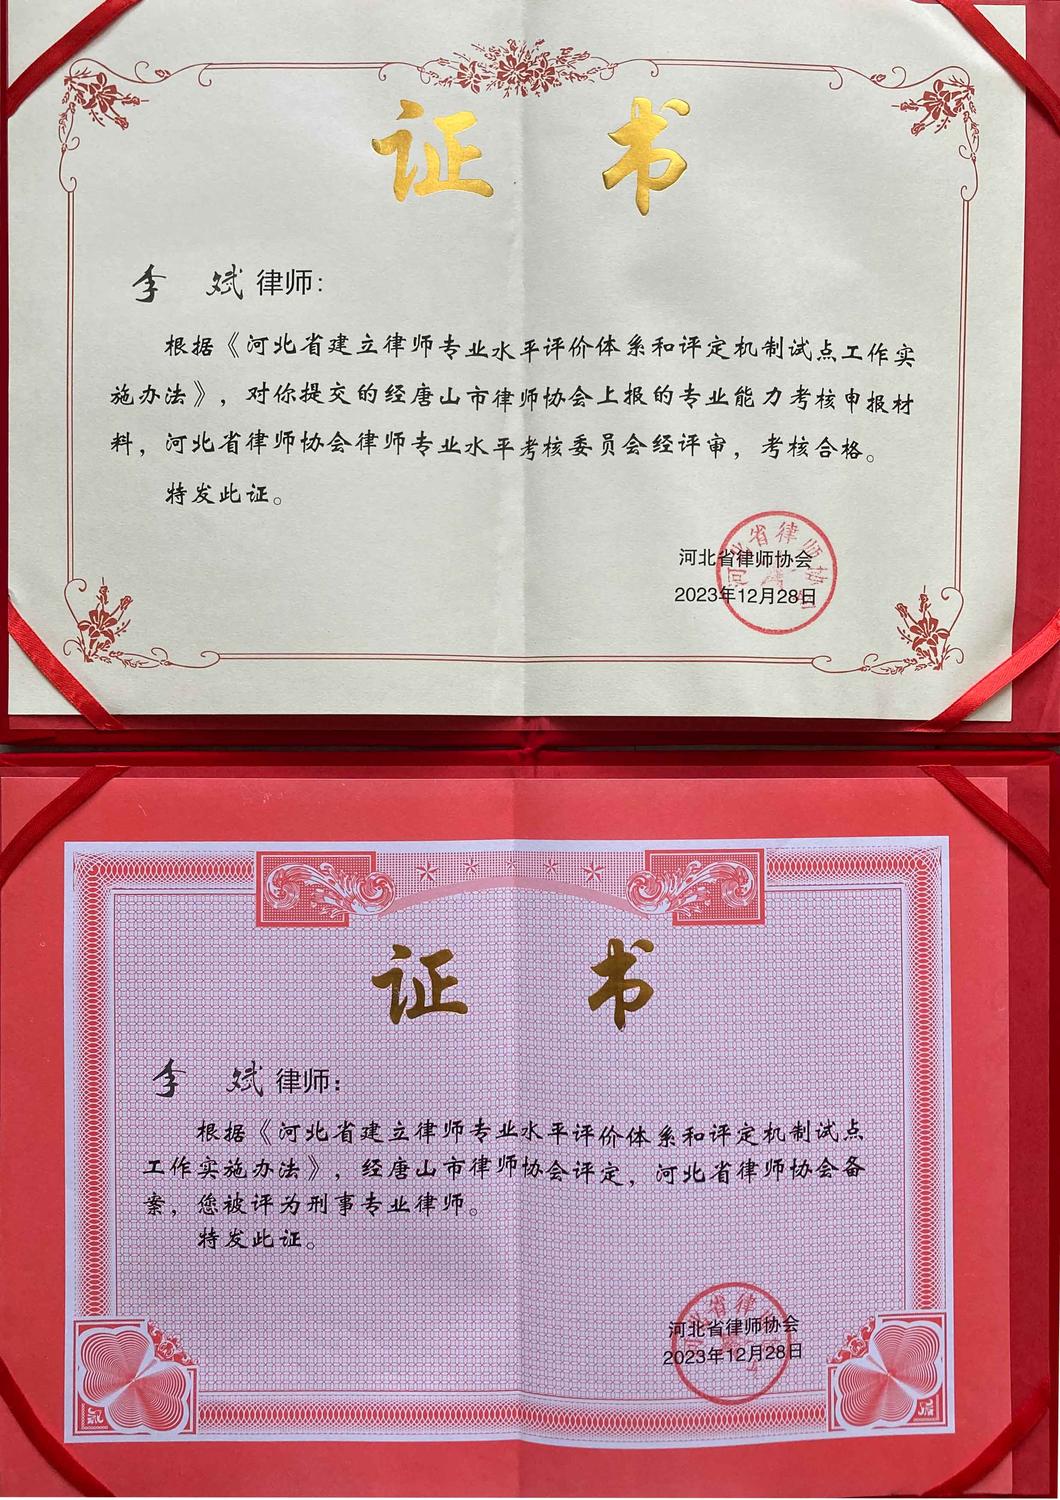 证 书
李 斌 律师：
根据《河北省建立律师专业水平评价体系和评定机制试点工作实
施办法》，对你提交的经唐山市律师协会上报的专业能力考核申报材
料，河北省律师协会律师专业水平考核委员会经评审，考核合格。
特发此证。
河北省律师协会
2023年12月28日
河北省律师协会
证 书
李 斌 律师：
根据《河北省建立律师专业水平评价体系和评定机制试点
工作实施办法》，经唐山市律师协会评定，河北省律师协会备
案，您被评为刑事专业律师。
特发此证。
河北省律师协会
2023年12月28日